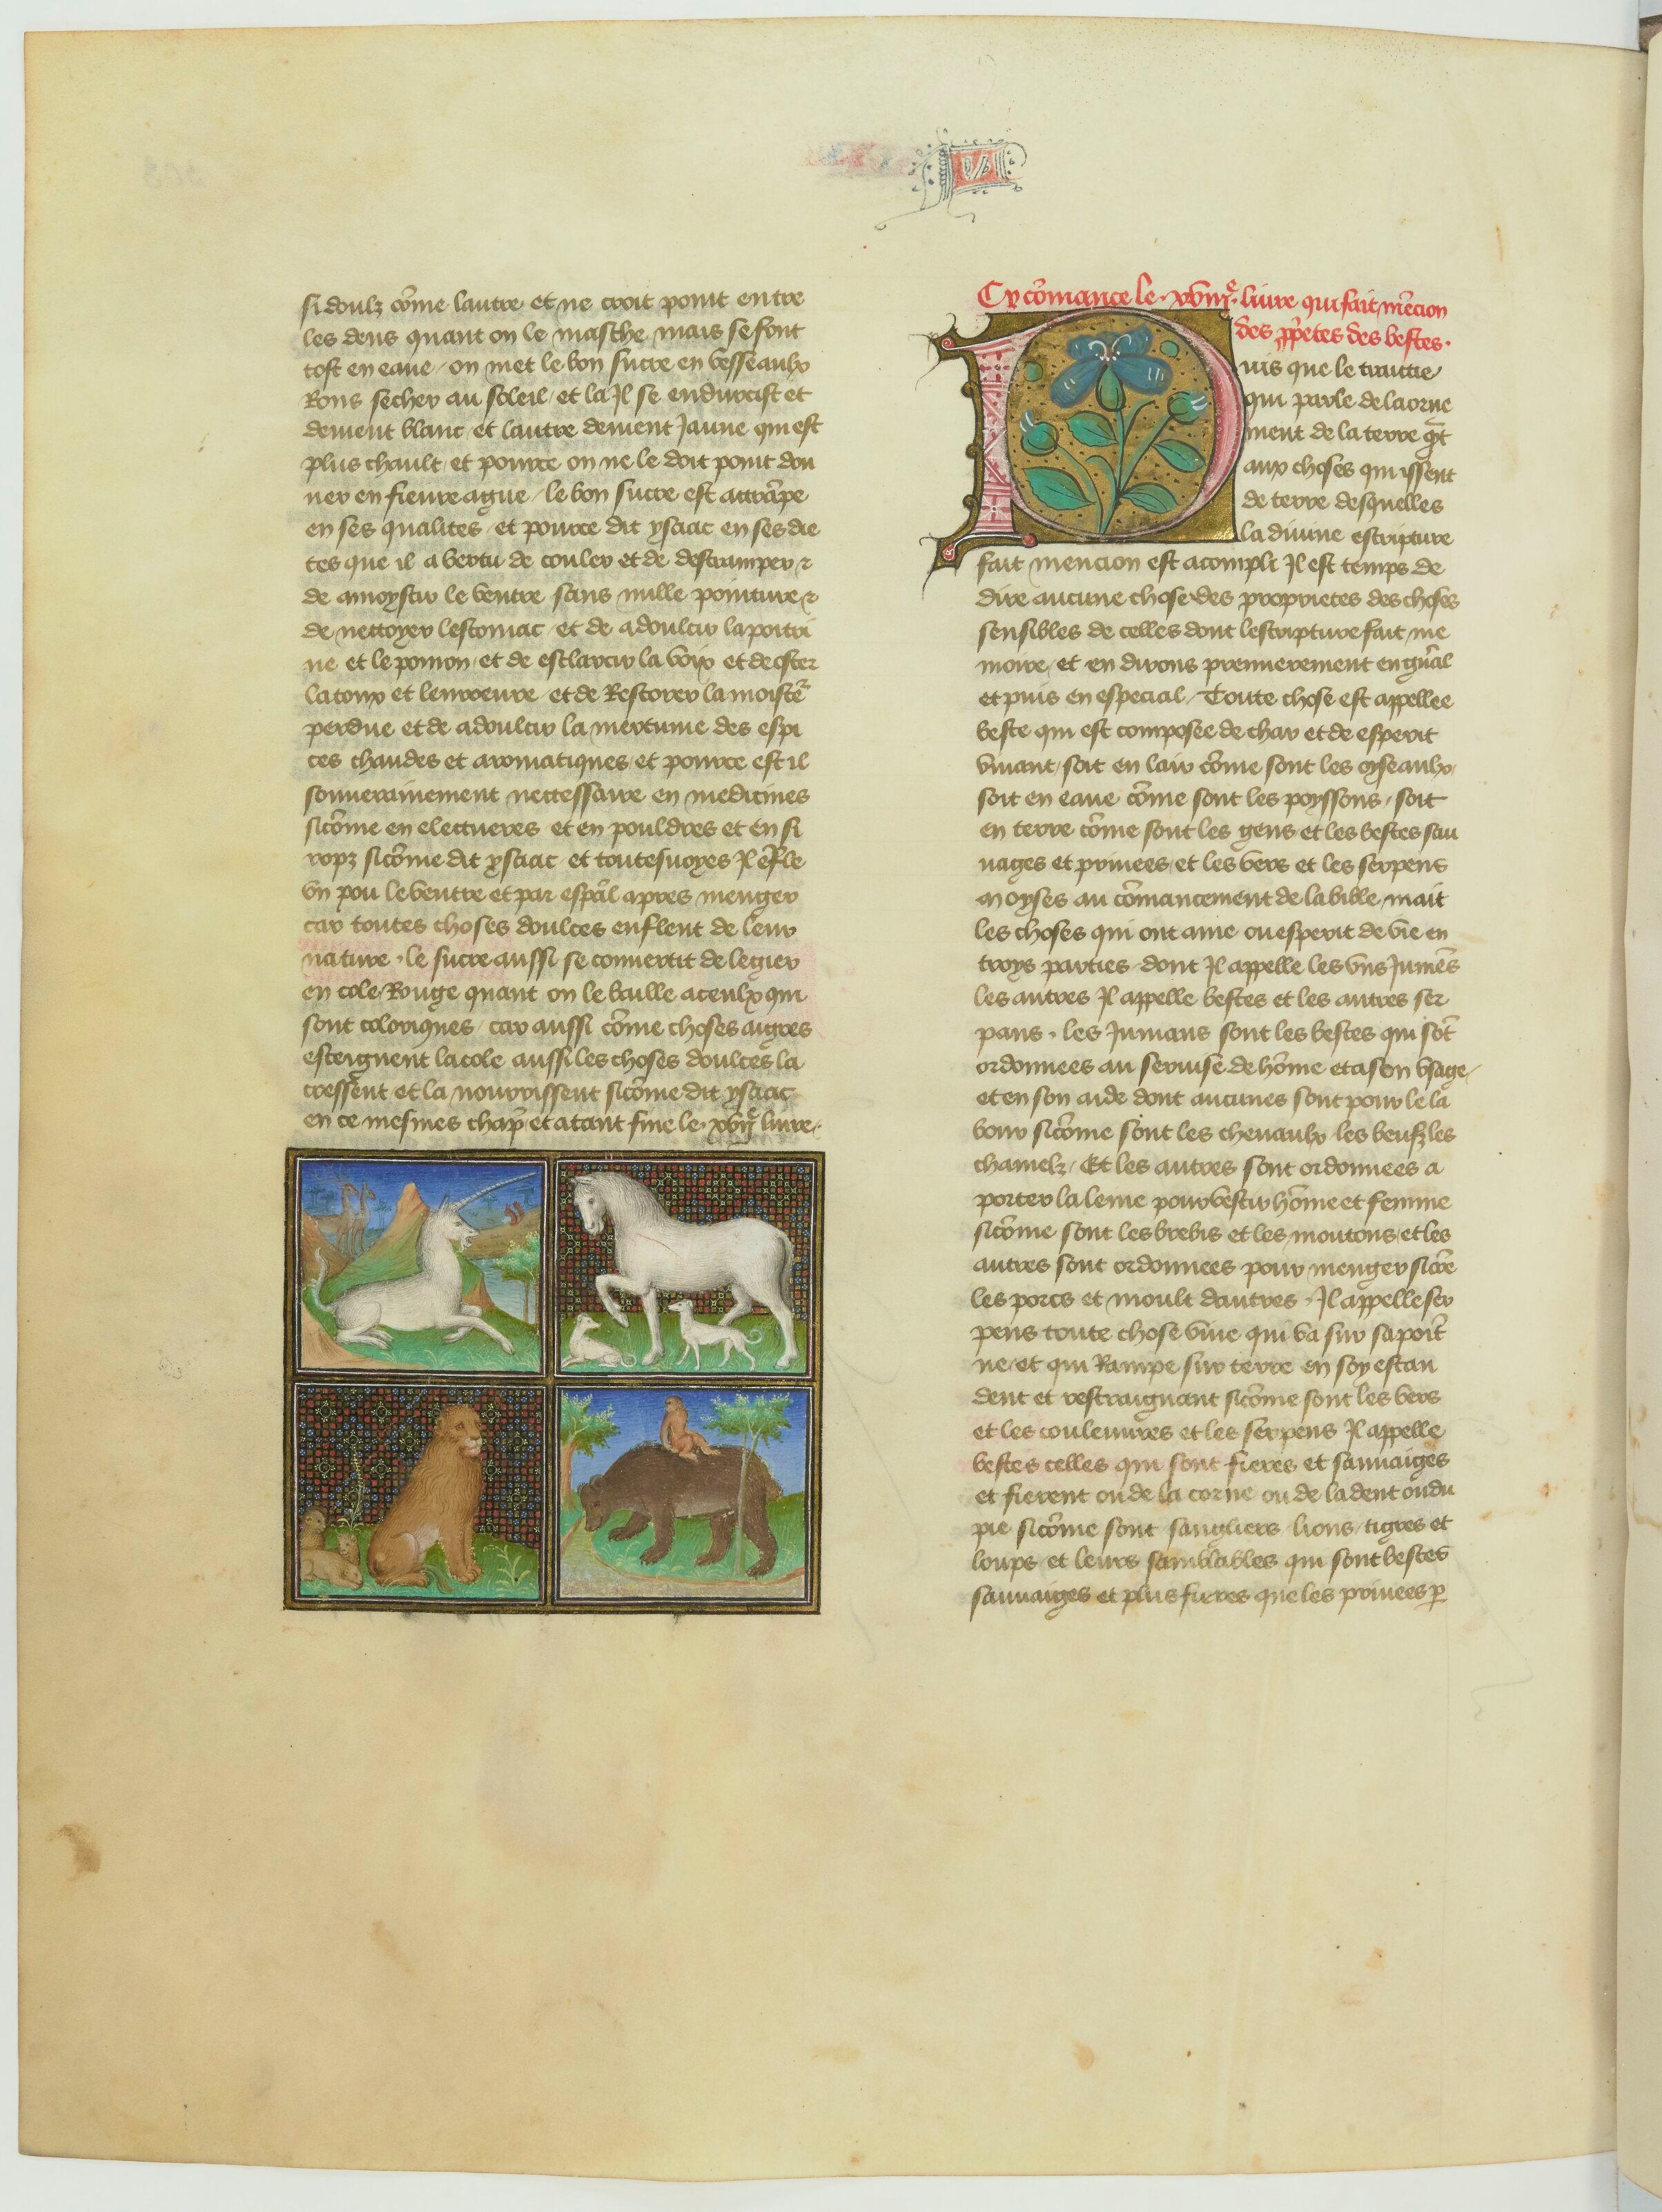 si doulz cõme lautre et ne croit point entre
les dens quant on le masche mais se font
tost en eaue / on met le bon sucre en vesseaulx
Rons secher au soleil / et la Il se endurcist et
deuient blanc et lautre deuient Jaune qui est
plus chault / et pource on ne le doit point don
ner en fieure ague / le bon sucre est attrãpe
en ses qualites / et pource dit ysaac en ses die
tes que il a vertu de couler et de destramper ⁊
de amoystir le ventre sans nulle pointure ⁊
de nettoyer lestomac / et de adoulcir la poitri
ne et le pomon / et de esclarcir la voix et de oster
la toux et lenroeure / et de Restorer la moiste͂
perdue et de adoulcir la mertume des espi
ces chaudes et aromatiques / et pource est il
souuerainement neccessaire en medicines
sicõme en electueres et en pouldres et en si
ropz sicõme dit ysaac / et toutesuoyes Il ẽfle
vn pou le ventre et par espãl apres menger
car toutes choses doulces enflent de leur
nature · le sucre aussi se conuertit de legier
en cole Rouge quant on le baille a ceulx qui
sont coloriques / car aussi cõme choses aigres
esteignent la cole aussi les choses doulces la
cressent et la nourrissent sicõme dit ysaac
en ce mesmes chap̃ et atant fine le · xvijᵉ liure ·
Cy cõmance le · xviijᵉ · liure qui fait mẽcion
des p̃p̃etes des bestes ·
Puis que le traitie
qui parle de laorne
ment de la terre q̃t
aux choses qui issent
de terre desquelles
la diuine escripture
fait mencion est acompli Il est temps de
dire aucune chose des proprietes des choses
sensibles de celles dont lescripture fait me
moire / et en dirons premierement en gñal
et puis en especial / Toute chose est appellee
beste qui est composee de char et de esperit
viuant / soit en lair cõme sont les oyseaulx /
soit en eaue cõme sont les poyssons / soit
en terre cõme sont les gens et les bestes sau
uages et priuees / et les vers et les serpens
Moyses au cõmancement de la bible mait
les choses qui ont ame ou esperit de vie en
troys parties / dont Il appelle les vns Jumẽs
les autres Il appelle bestes et les autres ser
pans · les Jumans sont les bestes qui sõt
ordonnees au seruise de hõme et a son vsage /
et en son aide dont aucunes sont pour le la
bour sicõme sont les cheuaulx les beufz les
chamelz / Et les autres sont ordonnees a
porter la leine pour vestir hõme et femme
sicõme sont les brebis et les moutons / et les
autres sont ordonnees pour menger sicõe
les porcs et moult dautres · Il appelle ser
pens toute chose viue qui va sur sa poit̃
ne / et qui Rampe sur terre en soy estan
dent et restraignant sicõme sont les vers
et les couleuures et les serpens Il appelle
bestes celles qui sont fieres et sauuaiges
et fierent ou de la corne ou de la dent ou du
pie sicõme sont sangliers / lions / tigres et
loups / et leurs samblables qui sont bestes
sauuaiges et plus fieres que les priuees p̱